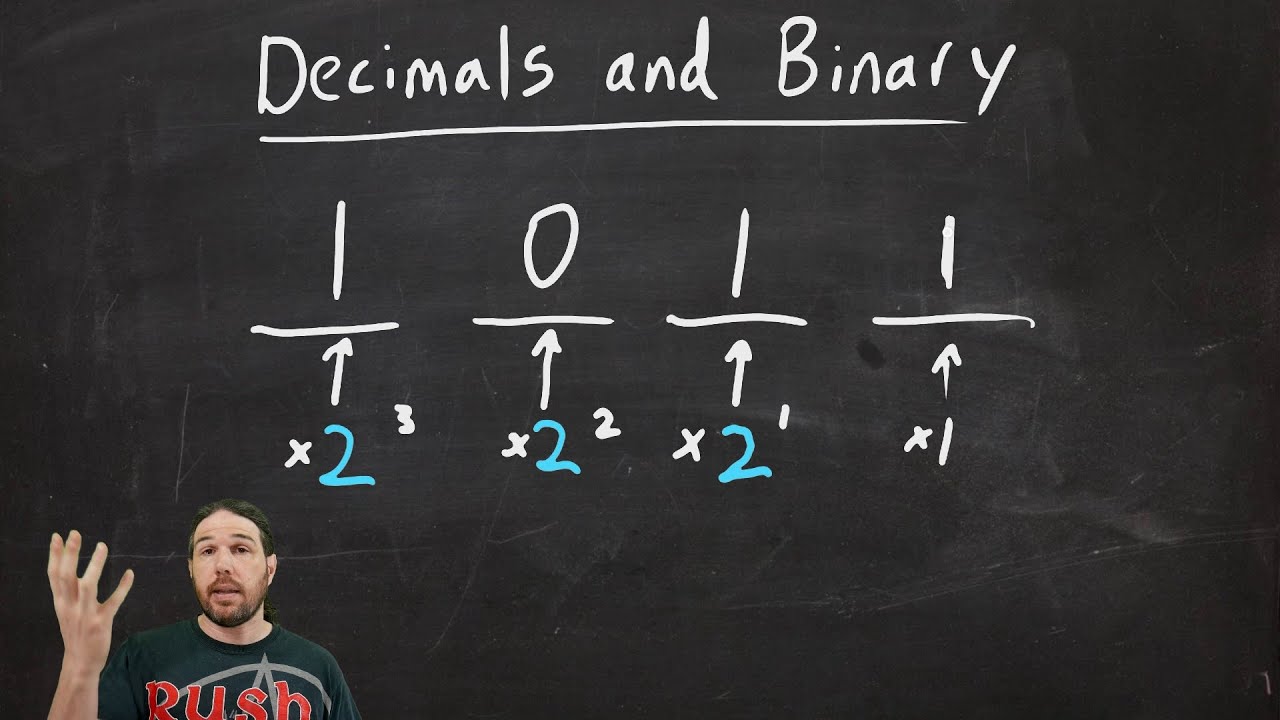 Decimals and Binary
1 0 1 1
×2³ ×2² ×2¹ ×1
Rush